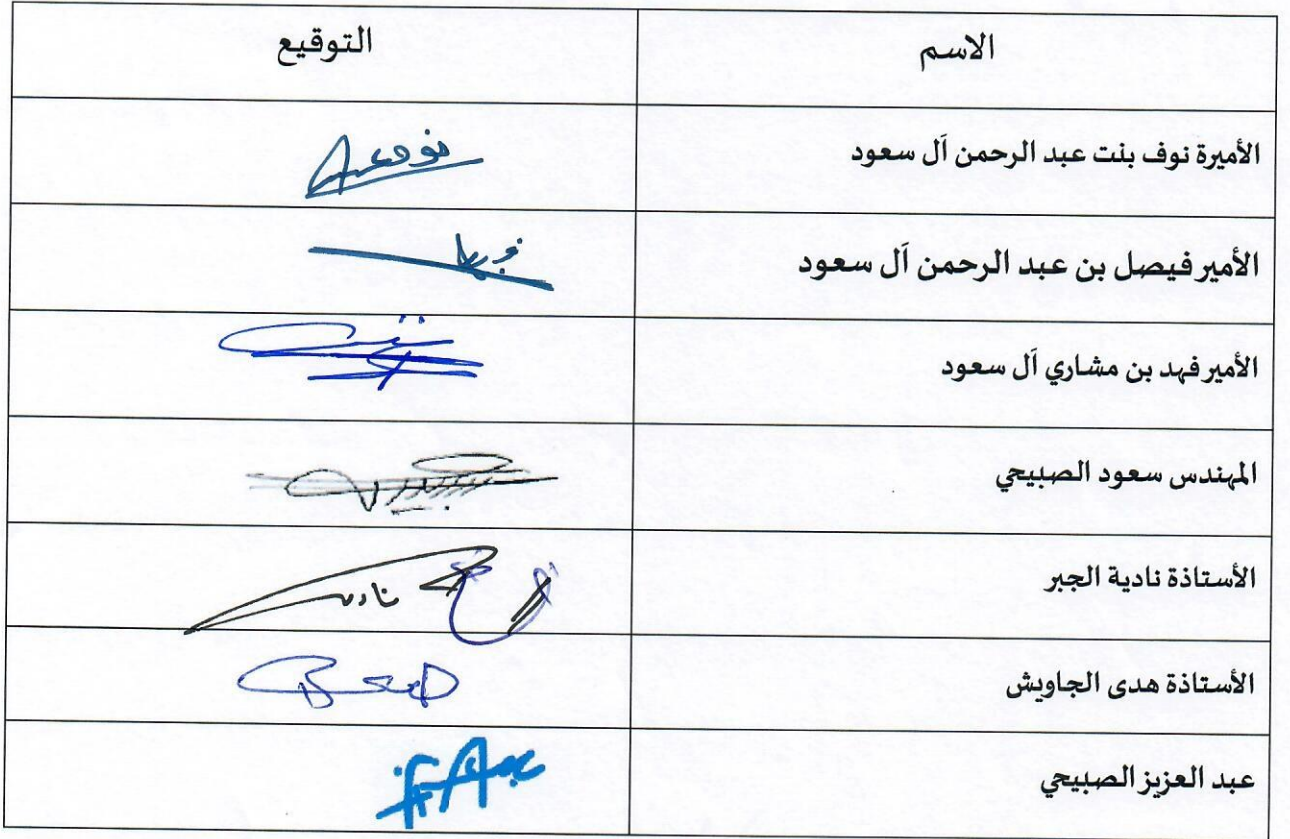 الاسم التوقيع
الأميرة نوف بنت عبد الرحمن آل سعود
الأمير فيصل بن عبد الرحمن آل سعود
الأمير فهد بن مشاري آل سعود
المهندس سعود الصبيحي
الأستاذة نادية الجبر
الأستاذة هدى الجاويش
عبد العزيز الصبيحي